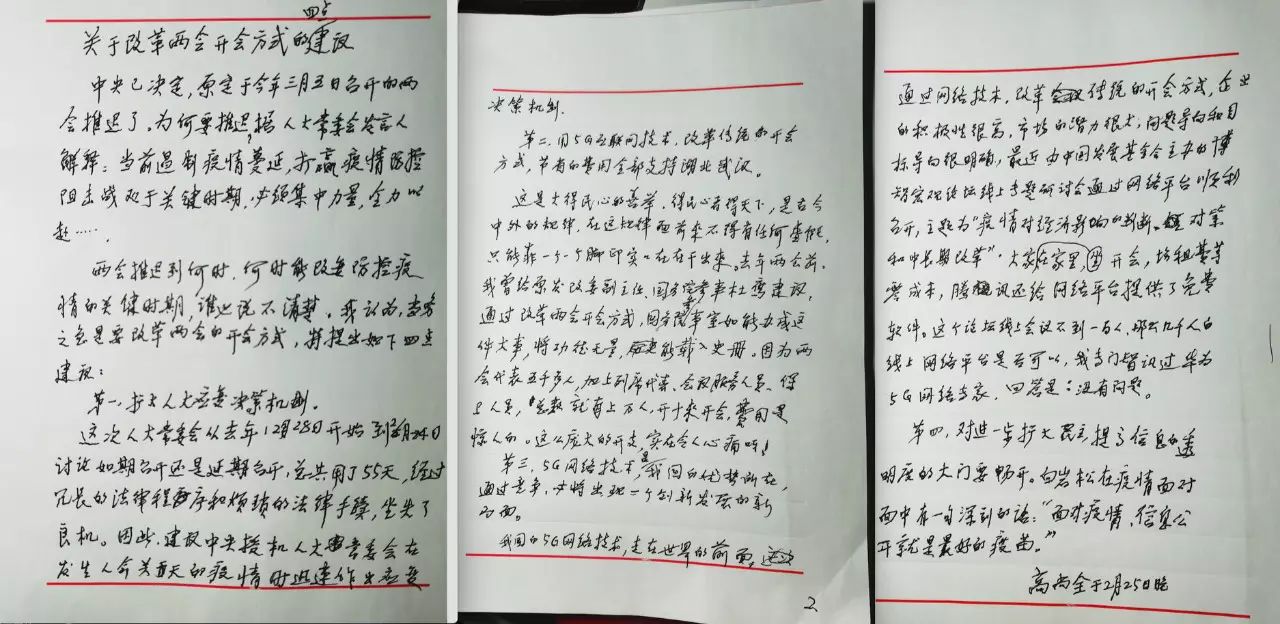 四点
关于改革两会开会方式的建议
中央已决定,原定于今年三月五日召开的两
会推迟了。为何要推迟?据人大常委会发言人
解释:当前遏制疫情蔓延,打赢疫情防控
阻击战处于关键时期,必须集中力量,全力以
赴……。
两会推迟到何时,何时能改变防控疫
情的关键时期,谁也说不清楚。我认为,当务
之急是要改革两会的开会方式,特提出如下四点
建议:
第一、扩大人大应急决策机制。
这次人大常委会从去年12月28日开始到2月24日
讨论如期召开还是延期召开,总共用了55天,经过
冗长的法律程序和烦琐的法律手续,坐失了
良机。因此,建议中央授权人大常委会在
发生人命关天的疫情时迅速作出应急
决策机制。
第二、用5G互联网技术,改革传统的开会
方式,节省的费用全部支持湖北武汉。
这是大得民心的善举,得民心者得天下,是古今
中外的规律,在这规律面前来不得有任何含糊,
只能靠一个一个脚印实实在在干出来。去年两会前,
我曾给原发改委副主任、国务院参事杜鹰建议,
通过改革两会开会方式,国务院参事室如能办成这
件大事,将功德无量,能载入史册。因为两
会代表五千多人,加上列席代表、会议服务人员、保
卫人员,总数就有上万人,开十来天会,费用是
惊人的。这么庞大的开支,实在令人心痛啊!
第三、5G网络技术,是我国的优势所在,
通过竞争,必将出现一个创新发展的新
局面。
我国的5G网络技术,走在世界的前面,
2
通过网络技术,改革传统的开会方式,企业
的积极性很高,市场的潜力很大,问题导向和目
标导向很明确,最近由中国发展基金会主办的博
智宏观论坛线上专题研讨会通过网络平台顺利
召开,主题为"疫情对经济影响的判断、对策
和中长期改革"。大家在家里开会,场租费等
零成本,腾讯还给网络平台提供了免费
软件。这个论坛线上会议不到一百人,那么几千人的
线上网络平台是否可以,我专门咨讯过华为
5G网络专家,回答是:没有问题。
第四、对进一步扩大民主提高信息的透
明度的大门要畅开。白岩松在疫情面对
面中有一句深刻的话:"面对疫情,信息公
开就是最好的疫苗。"
高尚全于2月25日晚